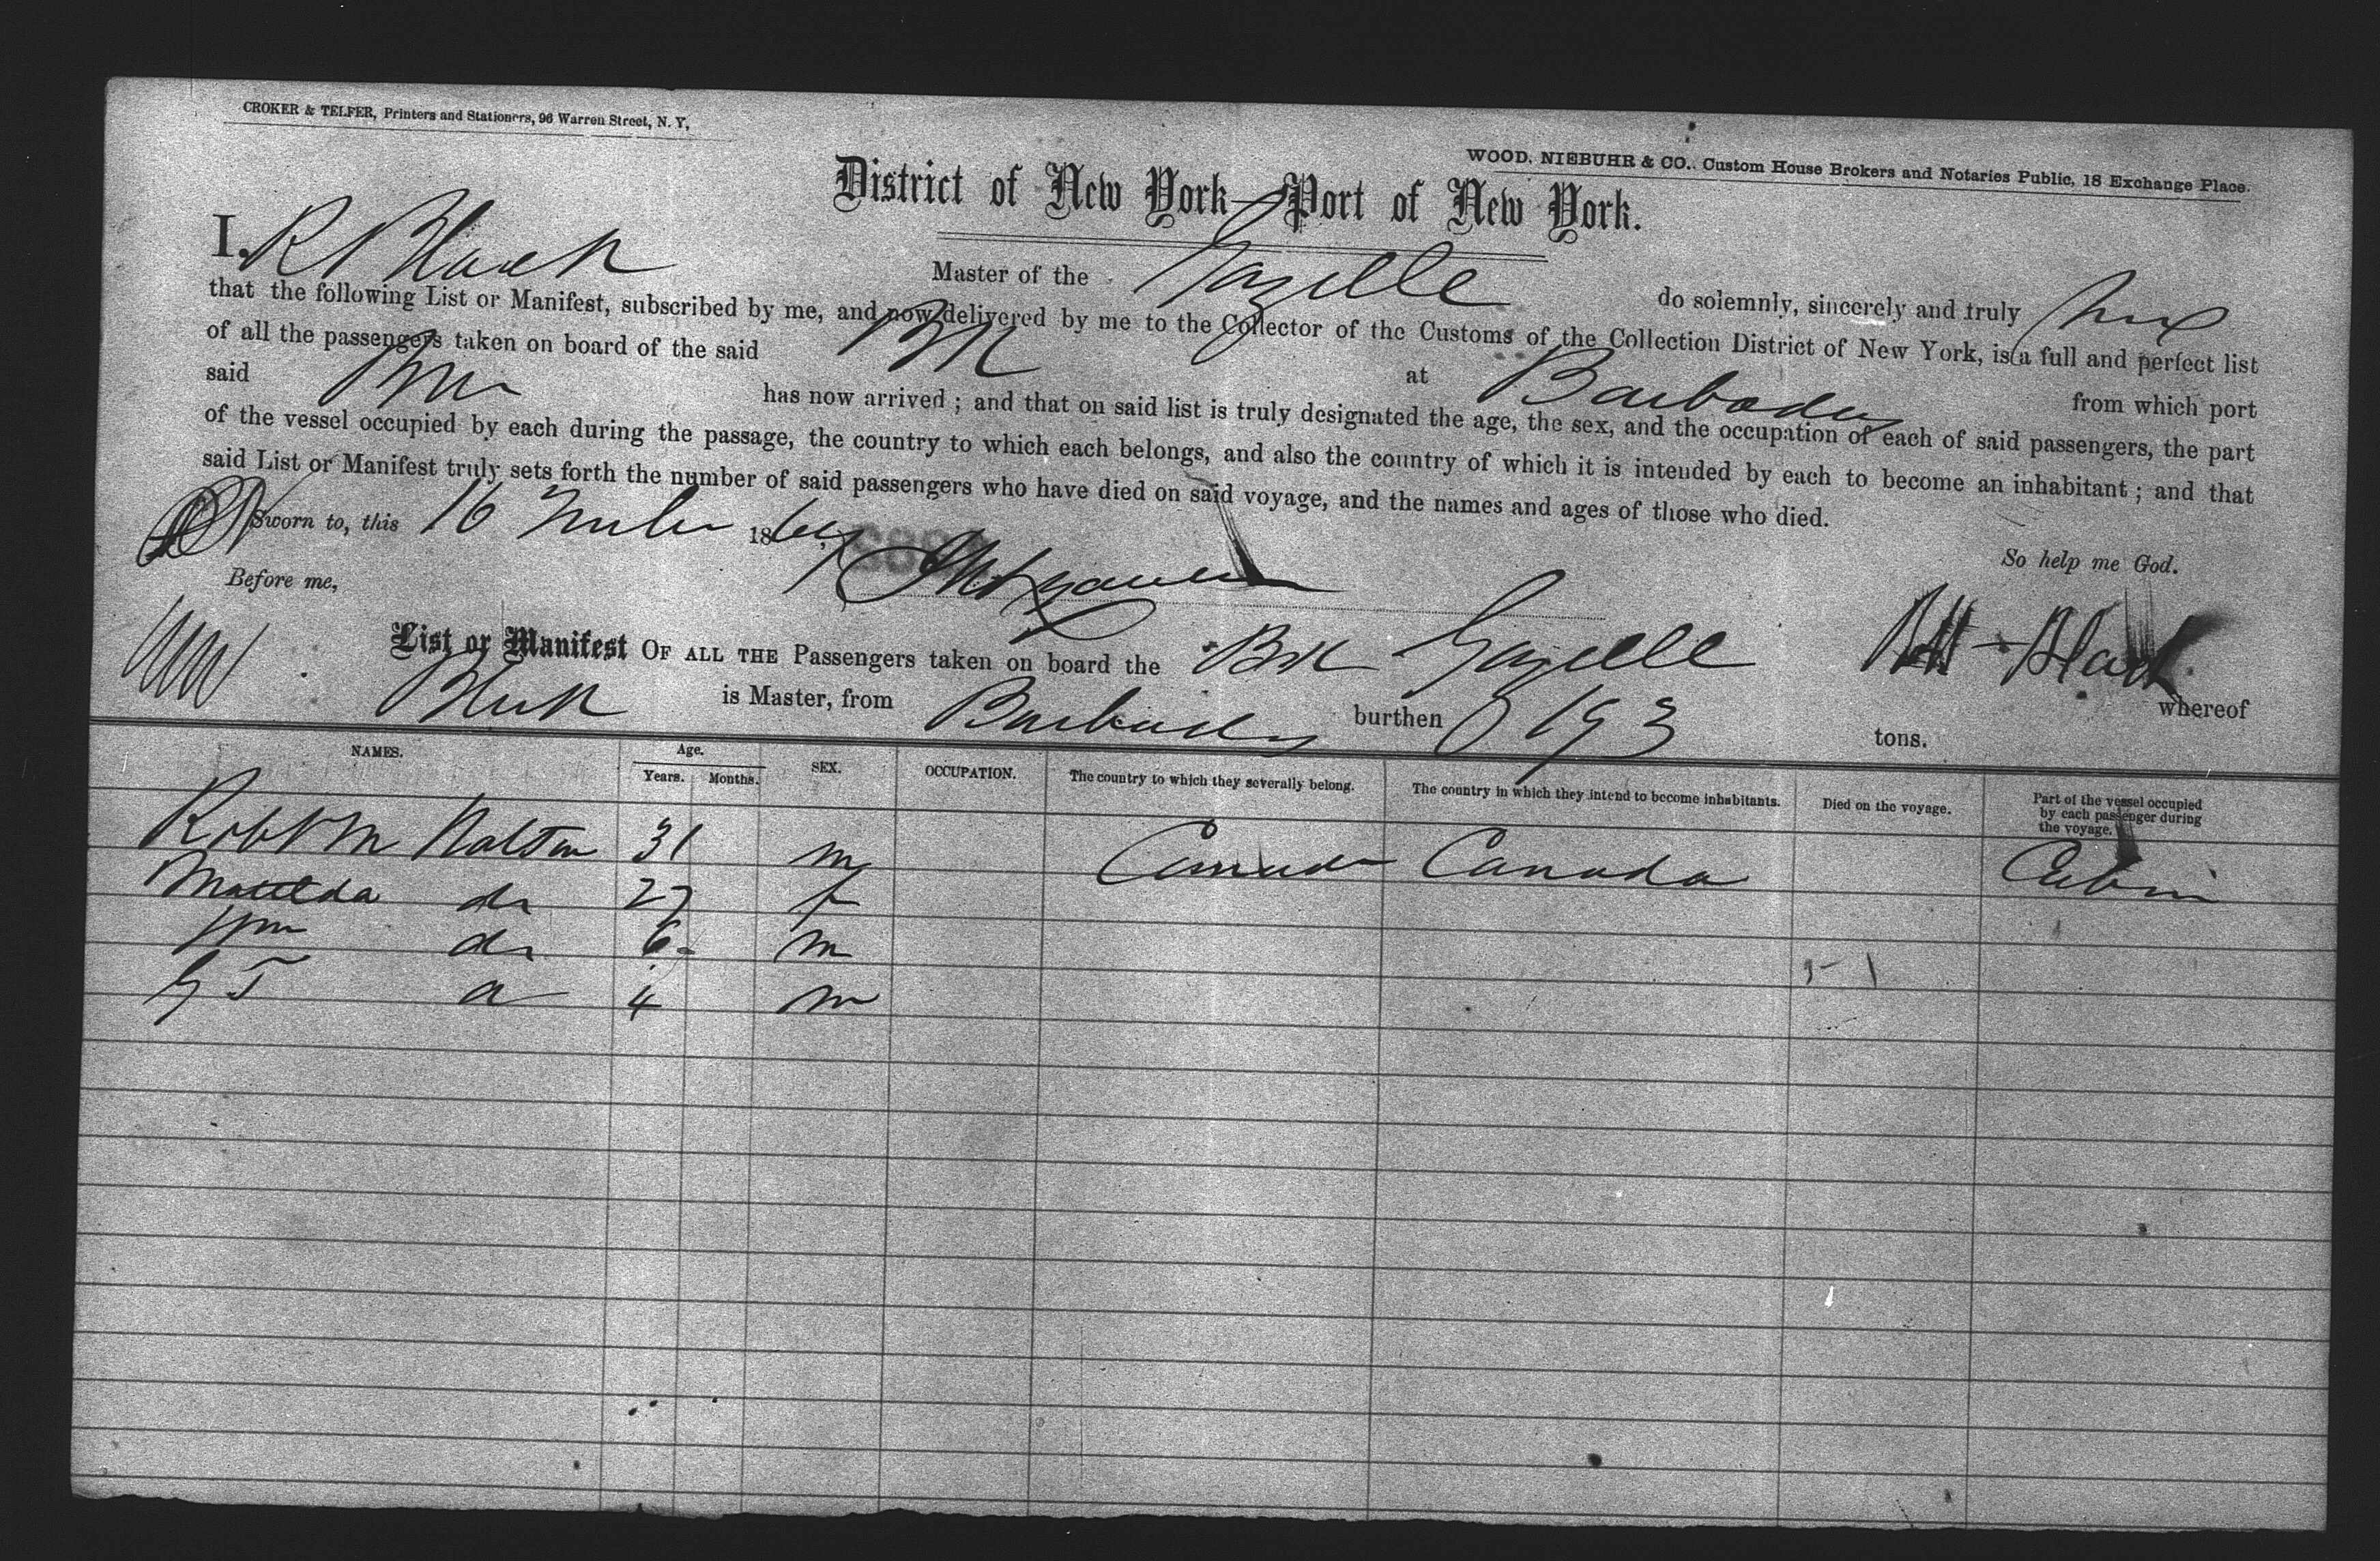 CROKER & TELFER, Printers and Stationers, 96 Warren Street, N. Y,
WOOD, NIEBUHR & CO., Custom House Brokers and Notaries Public, 18 Exchange Place.
District of New York—Port of New York.
I, R Black Master of the Gazelle do solemnly, sincerely and truly
that the following List or Manifest, subscribed by me, and now delivered by me to the Collector of the Customs of the Collection District of New York, is a full and perfect list
of all the passengers taken on board of the said Bk at Barbados from which port
said has now arrived ; and that on said list is truly designated the age, the sex, and the occupation of each of said passengers, the part
of the vessel occupied by each during the passage, the country to which each belongs, and also the country of which it is intended by each to become an inhabitant ; and that
said List or Manifest truly sets forth the number of said passengers who have died on said voyage, and the names and ages of those who died.
Sworn to, this 16 186
So help me God.
Before me,
Black
List or Manifest OF ALL THE Passengers taken on board the Bk Gazelle whereof
Black is Master, from Barbados burthen 193 tons.
NAMES. Age. Years. Months. SEX. OCCUPATION. The country to which they severally belong. The country in which they intend to become inhabitants. Died on the voyage. Part of the vessel occupied by each passenger during the voyage.
Robt M 31 m Canada Canada Cabin
Matilda do 27 f
Wm do 6 m
G T do 4 m